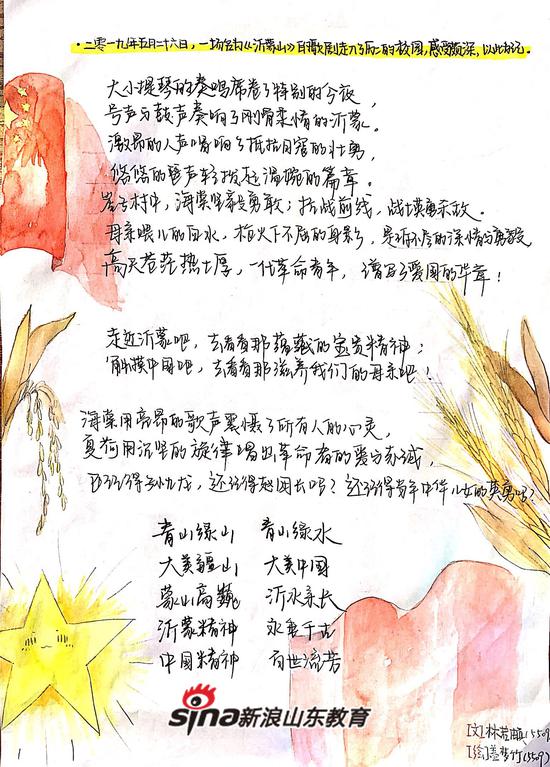 ·二零一九年五月二十六日，一场名为《沂蒙山》的歌剧走入了历二的校园，感受颇深，以此标记。
大小提琴的奏鸣席卷了特别的今夜，
号声与鼓声奏响了刚骨柔情的沂蒙。
激昂的人声唱响了抵抗日寇的壮勇，
悠悠的琴声轻拨起温婉的篇章。
崖子村中，海棠坚毅勇敢；抗战前线，战士英勇无敌。
母亲喂儿的血水，枪火下不屈的身影，是诉不尽的深情与勇毅
高天苍茫热土厚，一代革命青年，谱写了爱国的华章！
走近沂蒙吧，去看看那蕴藏的宝贵精神；
触摸中国吧，去看看那滋养我们的母亲吧！
海棠用高昂的歌声震慑了所有人的心灵，
夏荷用沉坠的旋律唱出革命者的爱与赤诚，
还记得孙九龙，还记得赵团长吗？还记得当年中华儿女的英勇吗？
青山绿山 青山绿水
大美疆山 大美中国
蒙山高巍 沂水亲长
沂蒙精神 永垂千古
中国精神 百世流芳
sina新浪山东教育
[文]林芳(5509)
[绘]盖梦竹(5509)